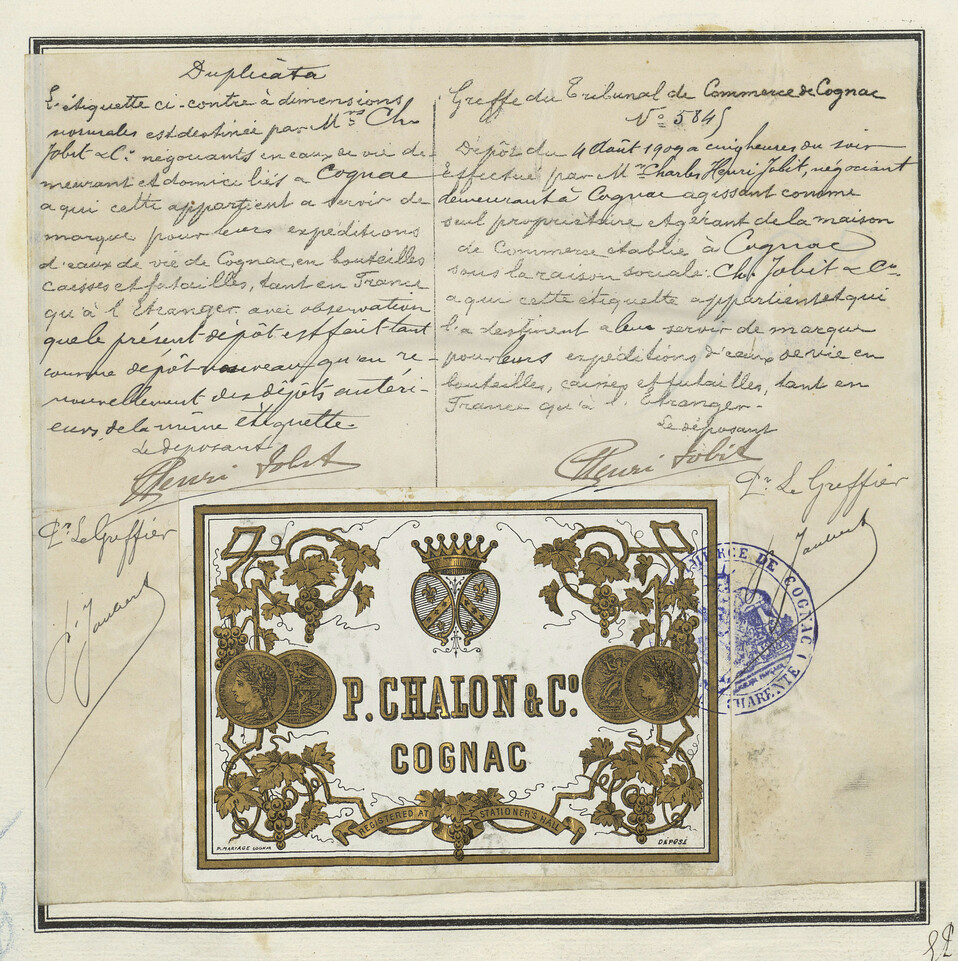 Duplicata
L'étiquette ci-contre à dimensions
normales est destinée par Mrs Ch.
Jobit & Cie négociants en eaux de vie de-
meurant et domiciliés à Cognac
a qui cette appartient a servir de
marque pour leurs expéditions
d'eaux de vie de Cognac, en bouteilles
caisses et futailles, tant en France
qu'à l'Etranger avec observation
que le présent dépôt est fait tant
comme dépôt nouveau qu'en re-
nouvellement des dépôts antéri-
eurs, de la même étiquette.
Le déposant
Henri Jobit
Pr Le Greffier
Greffe du Tribunal de Commerce de Cognac
No 5845
Dépôt du 4 Août 1909 a cinq heures du soir
Effectué par Mr Charles Henri Jobit, négociant
demeurant à Cognac agissant comme
seul propriétaire et gérant de la maison
de Commerce établie à Cognac
sous la raison sociale: Ch. Jobit & Cie
a qui cette étiquette appartient et qui
l'a destinent a leur servir de marque
pour leurs expéditions d'eaux de vie en
bouteilles, caisses et futailles, tant en
France qu'à l'Etranger-
Le déposant
Henri Jobit
Pr Le Greffier
P. CHALON & Co.
COGNAC
REGISTERED AT STATIONER'S HALL
P. MARIAGE COGNAC
DÉPOSÉ
DE COGNAC
CHARENTE